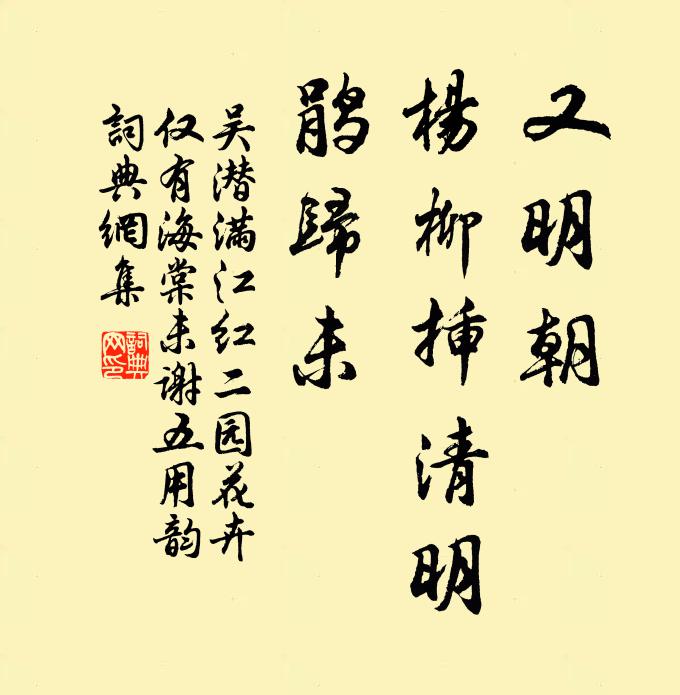 又明朝
楊柳挿清明
鹃歸未
吴潜满江红二园花卉
仅有海棠未谢五用韵
詞典網集
詞典網印